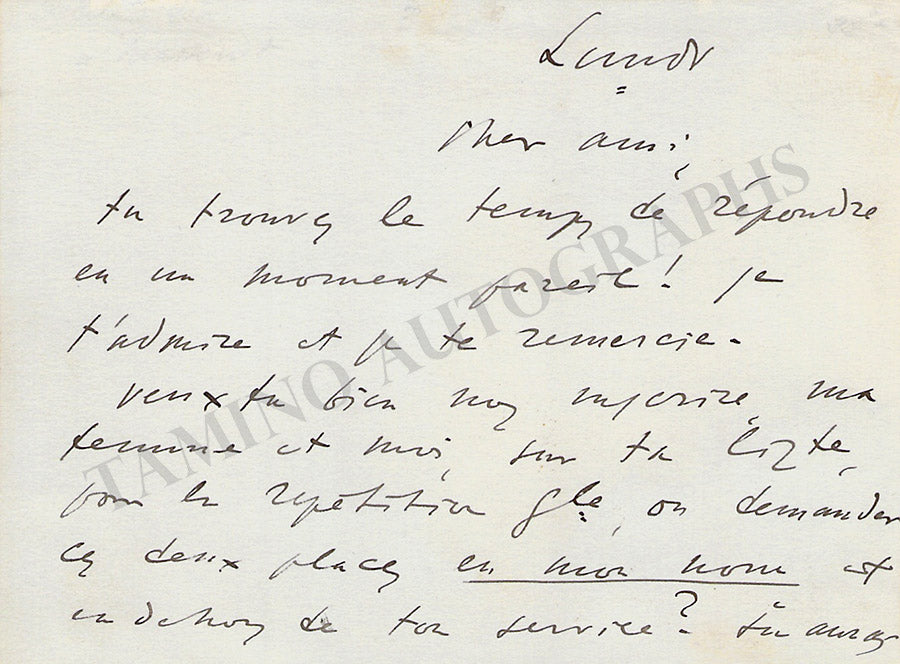 Lundi
Cher ami,
tu trouves le temps de répondre
en un moment pareil! je
t'admire et je te remercie.
veux tu bien nous inscrire, ma
femme et moi, sur ta liste,
pour la répétition gle, ou demander
ces deux places en mon nom et
en dehors de ton service? tu auras
TAMINO AUTOGRAPHS